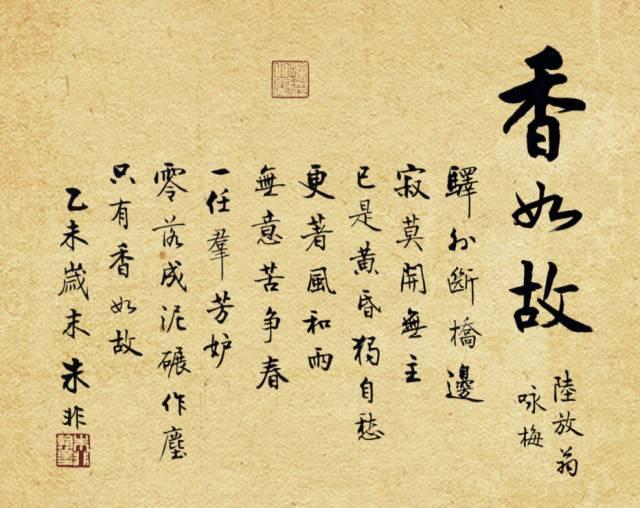 香如故
陸放翁
咏梅
驛外斷橋邊
寂莫開無主
已是黃昏獨自愁
更著風和雨
無意苦爭春
一任羣芳妒
零落成泥碾作塵
只有香如故
乙未歲末朱非